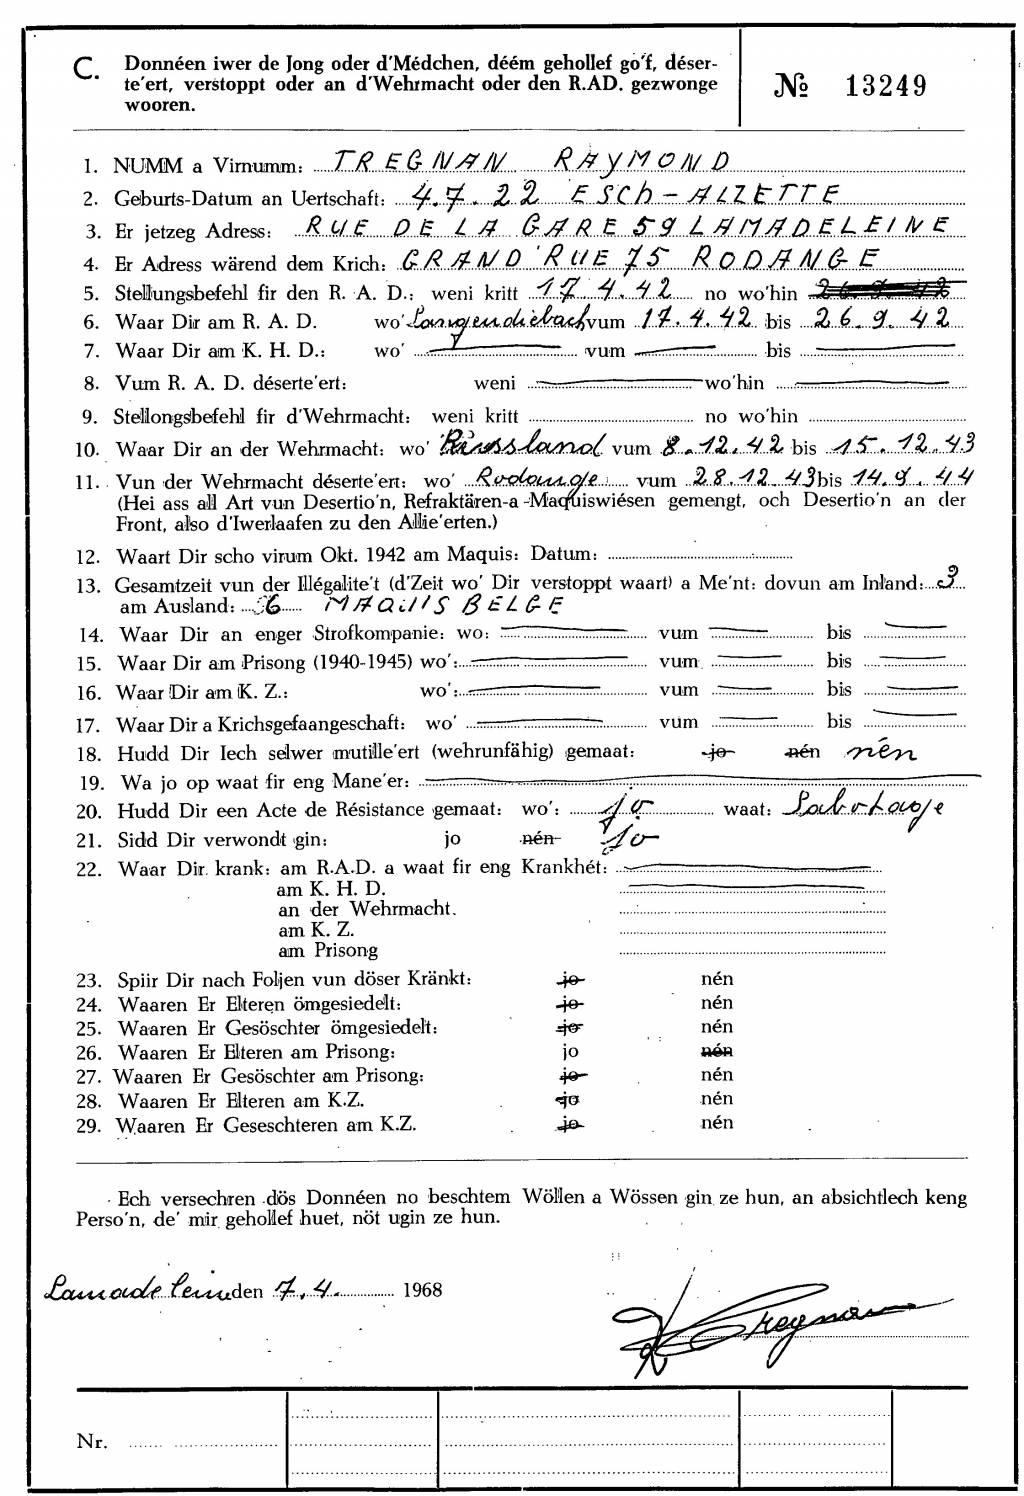 C. Donnéen iwer de Jong oder d'Médchen, déém gehollef go'f, déser-
te'ert, verstoppt oder an d'Wehrmacht oder den R.AD. gezwonge
wooren.
№ 13249
1. NUMM a Virnumm: TREGNAN RAYMOND
2. Geburts-Datum an Uertschaft: 4.7.22 ESCh-ALZETTE
3. Er jetzeg Adress: RUE DE LA GARE 59 LAMADELEINE
4. Er Adress wärend dem Krich: GRAND'RUE 75 RODANGE
5. Stellungsbefehl fir den R. A. D.: weni kritt 17.4.42 no wo'hin 26.9.42
6. Waar Dir am R. A. D. wo' Langendiebach vum 17.4.42 bis 26.9.42
7. Waar Dir am K. H. D.: wo' vum bis
8. Vum R. A. D. déserte'ert: weni wo'hin
9. Stellongsbefehl fir d'Wehrmacht: weni kritt no wo'hin
10. Waar Dir an der Wehrmacht: wo' Russland vum 8.12.42 bis 15.12.43
11. Vun der Wehrmacht déserte'ert: wo' Rodange vum 28.12.43 bis 14.9.44
(Hei ass all Art vun Desertio'n, Refraktären-a-Maquiswiésen gemengt, och Desertio'n an der
Front, also d'Iwerlaafen zu den Allie'erten.)
12. Waart Dir scho virum Okt. 1942 am Maquis: Datum:
13. Gesamtzeit vun der Illégalite't (d'Zeit wo' Dir verstoppt waart) a Me'nt: dovun am Inland: 3
am Ausland: 6 MAQUIS BELGE
14. Waar Dir an enger Strofkompanie: wo: vum bis
15. Waar Dir am Prisong (1940-1945) wo': vum bis
16. Waar Dir am K. Z.: wo': vum bis
17. Waar Dir a Krichsgefaangeschaft: wo' vum bis
18. Hudd Dir Iech selwer mutille'ert (wehrunfähig) gemaat: jo nén nén
19. Wa jo op waat fir eng Mane'er:
20. Hudd Dir een Acte de Résistance gemaat: wo': jo waat: Sabotage
21. Sidd Dir verwondt gin: jo nén jo
22. Waar Dir krank: am R.A.D. a waat fir eng Krankhét:
am K. H. D.
an der Wehrmacht.
am K. Z.
am Prisong
23. Spiir Dir nach Foljen vun döser Kränkt: jo nén
24. Waaren Er Elteren ömgesiedelt: jo nén
25. Waaren Er Gesöschter ömgesiedelt: jo nén
26. Waaren Er Elteren am Prisong: jo nén
27. Waaren Er Gesöschter am Prisong: jo nén
28. Waaren Er Elteren am K.Z. jo nén
29. Waaren Er Geseschteren am K.Z. jo nén
Ech versechren dös Donnéen no beschtem Wöllen a Wössen gin ze hun, an absichtlech keng
Perso'n, de' mir gehollef huet, nöt ugin ze hun.
Lamadeleine den 7.4. 1968
Tregnan
Nr.